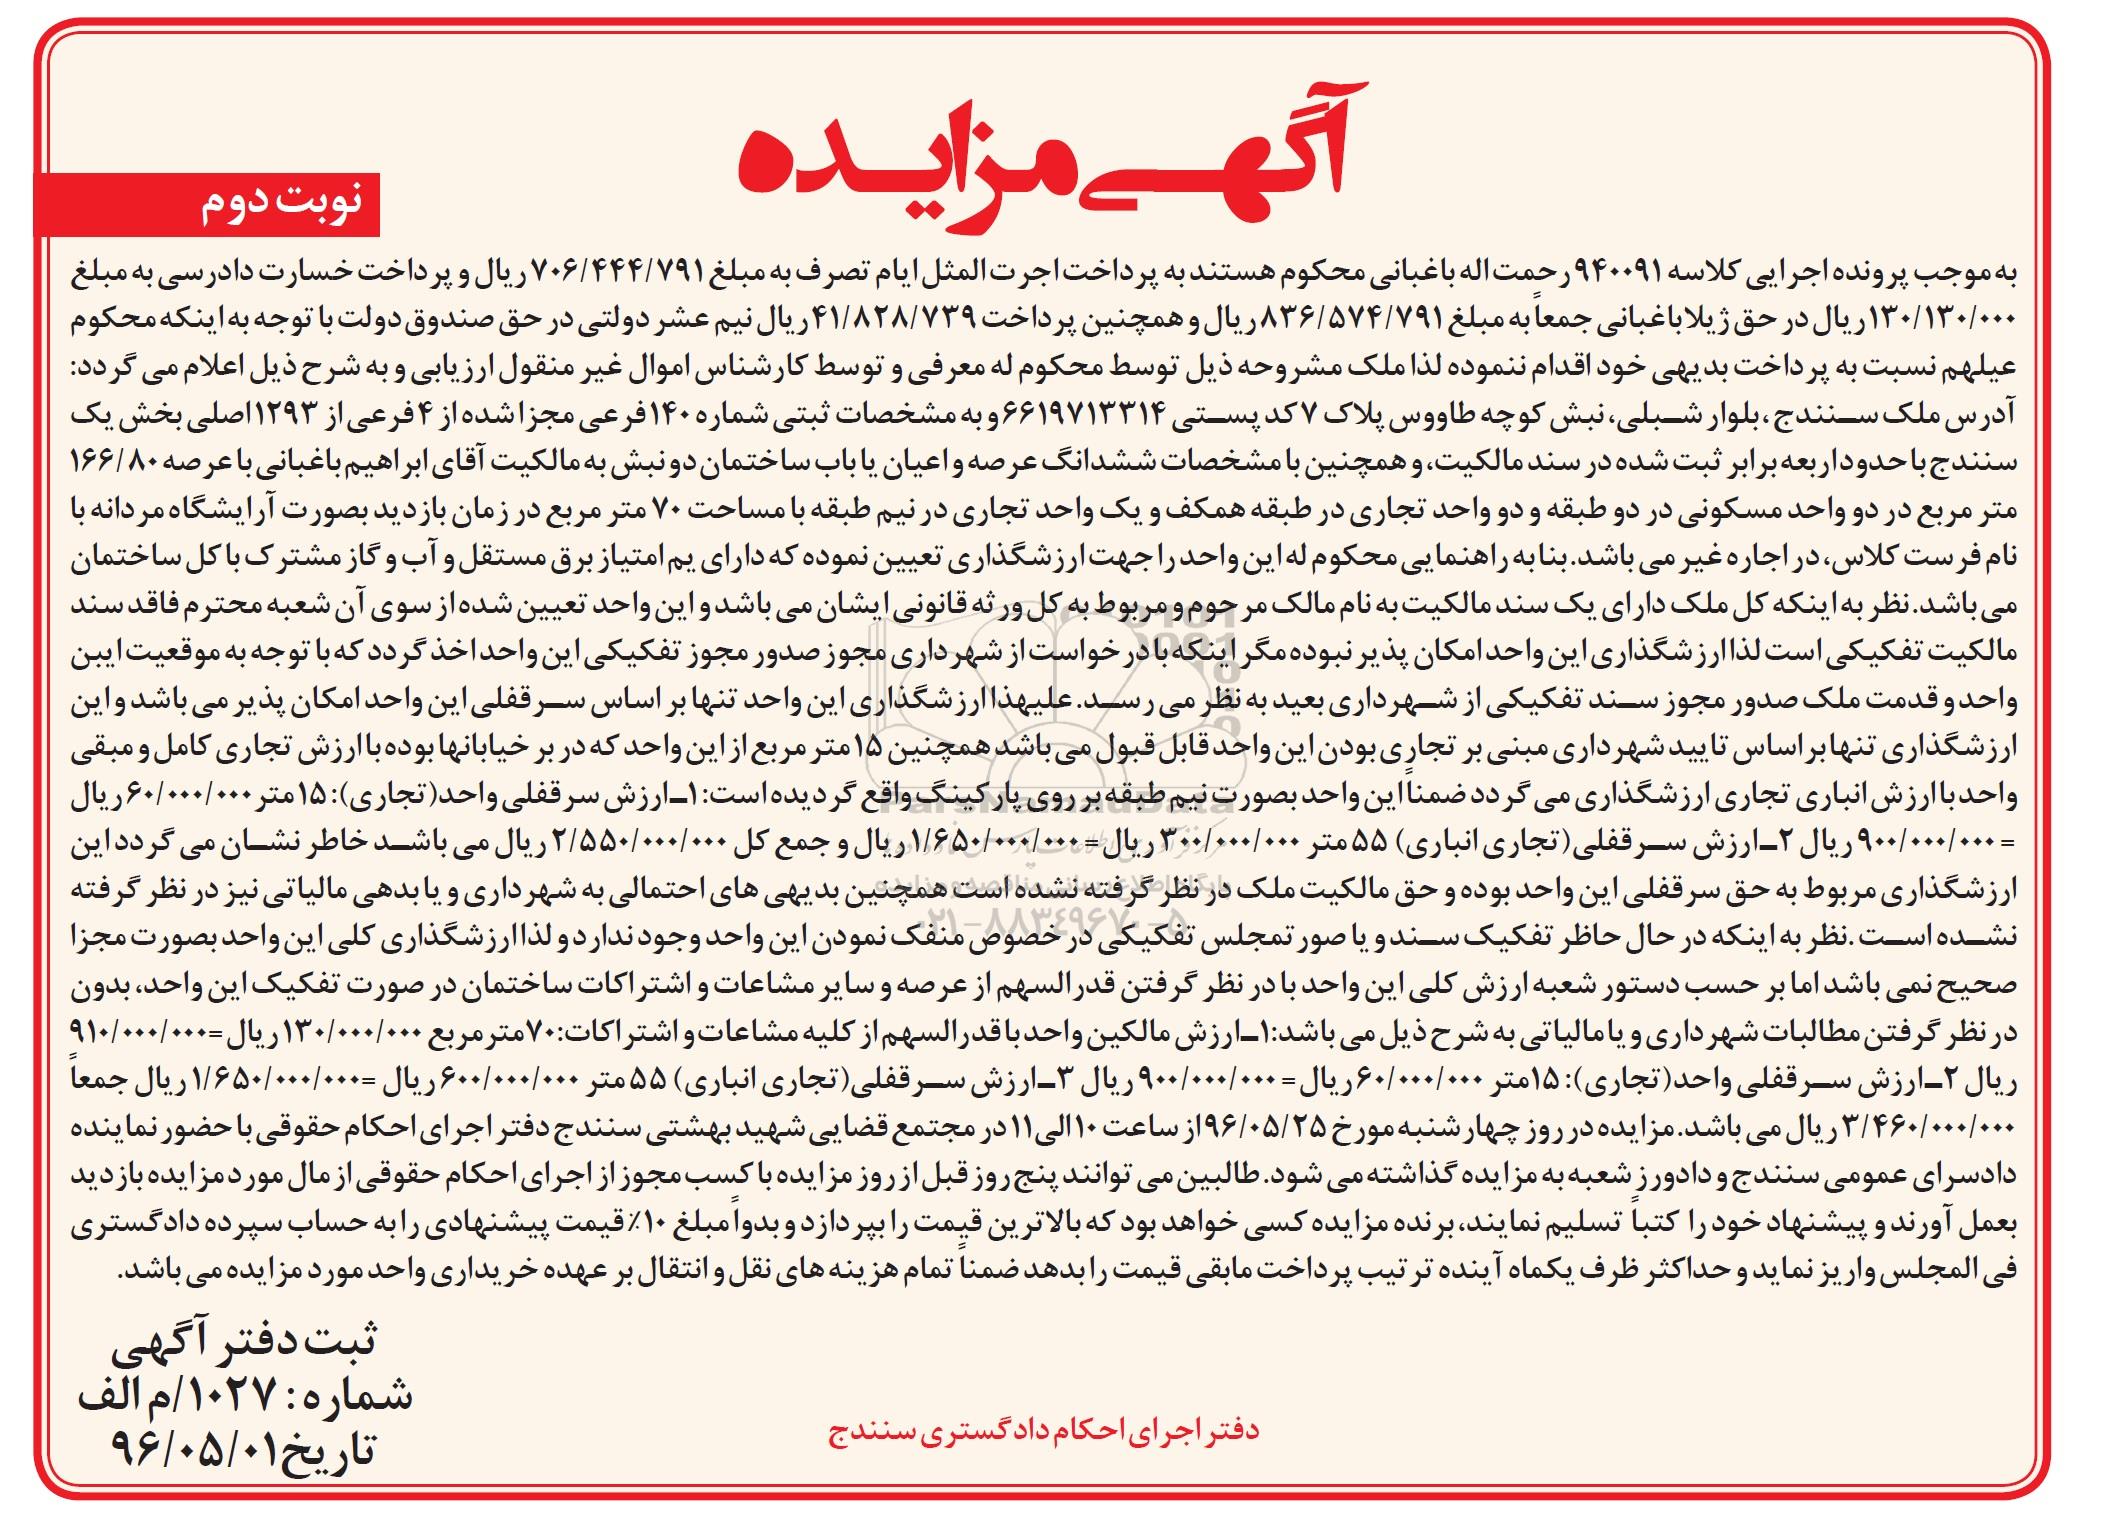 آگهی مزایده
نوبت دوم
به موجب پرونده اجرایی کلاسه ۹۴۰۰۹۱ رحمت اله باغبانی محکوم هستند به پرداخت اجرت المثل ایام تصرف به مبلغ ۷۰۶/۴۴۴/۷۹۱ ریال و پرداخت خسارت دادرسی به مبلغ
۱۳۰/۱۳۰/۰۰۰ ریال در حق ژیلا باغبانی جمعاً به مبلغ ۸۳۶/۵۷۴/۷۹۱ ریال و همچنین پرداخت ۴۱/۸۲۸/۷۳۹ ریال نیم عشر دولتی در حق صندوق دولت با توجه به اینکه محکوم
عیلهم نسبت به پرداخت بدیهی خود اقدام ننموده لذا ملک مشروحه ذیل توسط محکوم له معرفی و توسط کارشناس اموال غیر منقول ارزیابی و به شرح ذیل اعلام می گردد:
آدرس ملک سنندج، بلوار شبلی، نبش کوچه طاووس پلاک ۷ کد پستی ۶۶۱۹۷۱۳۳۱۴ و به مشخصات ثبتی شماره ۱۴۰ فرعی مجزا شده از ۴ فرعی از ۱۲۹۳ اصلی بخش یک
سنندج با حدود اربعه برابر ثبت شده در سند مالکیت، و همچنین با مشخصات ششدانگ عرصه و اعیان یا باب ساختمان دو نبش به مالکیت آقای ابراهیم باغبانی با عرصه ۱۶۶/۸۰
متر مربع در دو واحد مسکونی در دو طبقه و دو واحد تجاری در طبقه همکف و یک واحد تجاری در نیم طبقه با مساحت ۷۰ متر مربع در زمان بازدید بصورت آرایشگاه مردانه با
نام فرست کلاس، در اجاره غیر می باشد. بنا به راهنمایی محکوم له این واحد را جهت ارزشگذاری تعیین نموده که دارای یم امتیاز برق مستقل و آب و گاز مشترک با کل ساختمان
می باشد. نظر به اینکه کل ملک دارای یک سند مالکیت به نام مالک مرحوم و مربوط به کل ورثه قانونی ایشان می باشد و این واحد تعیین شده از سوی آن شعبه محترم فاقد سند
مالکیت تفکیکی است لذا ارزشگذاری این واحد امکان پذیر نبوده مگر اینکه با درخواست از شهرداری مجوز صدور مجوز تفکیکی این واحد اخذ گردد که با توجه به موقعیت ایین
واحد و قدمت ملک صدور مجوز سند تفکیکی از شهرداری بعید به نظر می رسد. علیهذا ارزشگذاری این واحد تنها بر اساس سرقفلی این واحد امکان پذیر می باشد و این
ارزشگذاری تنها بر اساس تایید شهرداری مبنی بر تجاری بودن این واحد قابل قبول می باشد همچنین ۱۵ متر مربع از این واحد که در بر خیابانها بوده با ارزش تجاری کامل و مبقی
واحد با ارزش انباری تجاری ارزشگذاری می گردد ضمناً این واحد بصورت نیم طبقه بر روی پارکینگ واقع گردیده است: ۱ـ ارزش سرقفلی واحد (تجاری): ۱۵ متر ۶۰/۰۰۰/۰۰۰ ریال
= ۹۰۰/۰۰۰/۰۰۰ ریال ۲ـ ارزش سرقفلی (تجاری انباری) ۵۵ متر ۳۰۰/۰۰۰/۰۰۰ ریال = ۱/۶۵۰/۰۰۰/۰۰۰ ریال و جمع کل ۲/۵۵۰/۰۰۰/۰۰۰ ریال می باشد خاطر نشان می گردد این
ارزشگذاری مربوط به حق سرقفلی این واحد بوده و حق مالکیت ملک در نظر گرفته نشده است همچنین بدیهی های احتمالی به شهرداری و یا بدهی مالیاتی نیز در نظر گرفته
نشده است. نظر به اینکه در حال حاظر تفکیک سند و یا صورتمجلس تفکیکی در خصوص منفک نمودن این واحد وجود ندارد و لذا ارزشگذاری کلی این واحد بصورت مجزا
صحیح نمی باشد اما بر حسب دستور شعبه ارزش کلی این واحد با در نظر گرفتن قدرالسهم از عرصه و سایر مشاعات و اشتراکات ساختمان در صورت تفکیک این واحد، بدون
در نظر گرفتن مطالبات شهرداری و یا مالیاتی به شرح ذیل می باشد: ۱ـ ارزش مالکین واحد با قدرالسهم از کلیه مشاعات و اشتراکات: ۷۰ متر مربع ۱۳۰/۰۰۰/۰۰۰ ریال = ۹۱۰/۰۰۰/۰۰۰
ریال ۲ـ ارزش سرقفلی واحد (تجاری): ۱۵ متر ۶۰/۰۰۰/۰۰۰ ریال = ۹۰۰/۰۰۰/۰۰۰ ریال ۳ـ ارزش سرقفلی (تجاری انباری) ۵۵ متر ۶۰۰/۰۰۰/۰۰۰ ریال = ۱/۶۵۰/۰۰۰/۰۰۰ ریال جمعاً
۳/۴۶۰/۰۰۰/۰۰۰ ریال می باشد. مزایده در روز چهارشنبه مورخ ۹۶/۰۵/۲۵ از ساعت ۱۰ الی ۱۱ در مجتمع قضایی شهید بهشتی سنندج دفتر اجرای احکام حقوقی با حضور نماینده
دادسرای عمومی سنندج و دادورز شعبه به مزایده گذاشته می شود. طالبین می توانند پنج روز قبل از روز مزایده با کسب مجوز از اجرای احکام حقوقی از مال مورد مزایده بازدید
بعمل آورند و پیشنهاد خود را کتباً تسلیم نمایند، برنده مزایده کسی خواهد بود که بالاترین قیمت را بپردازد و بدواً مبلغ ۱۰٪ قیمت پیشنهادی را به حساب سپرده دادگستری
فی المجلس واریز نماید و حداکثر ظرف یکماه آینده ترتیب پرداخت مابقی قیمت را بدهد ضمناً تمام هزینه های نقل و انتقال بر عهده خریداری واحد مورد مزایده می باشد.
ParsNamadData
پایگاه اطلاع رسانی مناقصه و مزایده
۰۲۱-۸۸۳۴۹۶۷۰-۵
ثبت دفتر آگهی
شماره: ۱۰۲۷/م الف
تاریخ ۹۶/۰۵/۰۱
دفتر اجرای احکام دادگستری سنندج